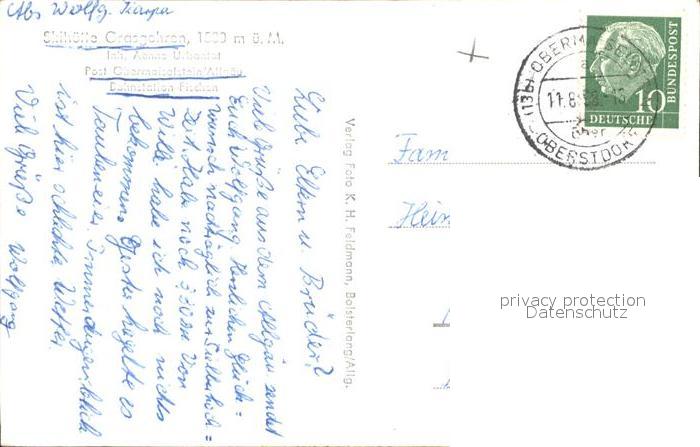 Abs. Wolfg.
Skihütte Grasgehren, 1500 m ü. M.
Inh. Aenne Urbantat
Post Obermaiselstein/Allgäu
Bahnstation Fischen
Liebe Eltern u. Brüder!
Viele Grüße aus dem Allgäu sendet
Euch Wolfgang. Herzlichen Glück=
wunsch nachträglich zur Silberhoch=
zeit. Habe noch von
Willi habe ich noch nichts
bekommen. Gestern hagelte es
Taubeneier. Im Augenblick
ist hier schlechtes Wetter.
Viele Grüße Wolfgang
Verlag Foto K. H. Feldmann, Bolsterlang/Allg.
Fam
Hein
(13b) OBERMAISELSTEIN
a
11.8.
über
OBERSTDORF
DEUTSCHE
BUNDESPOST
10
privacy protection
Datenschutz